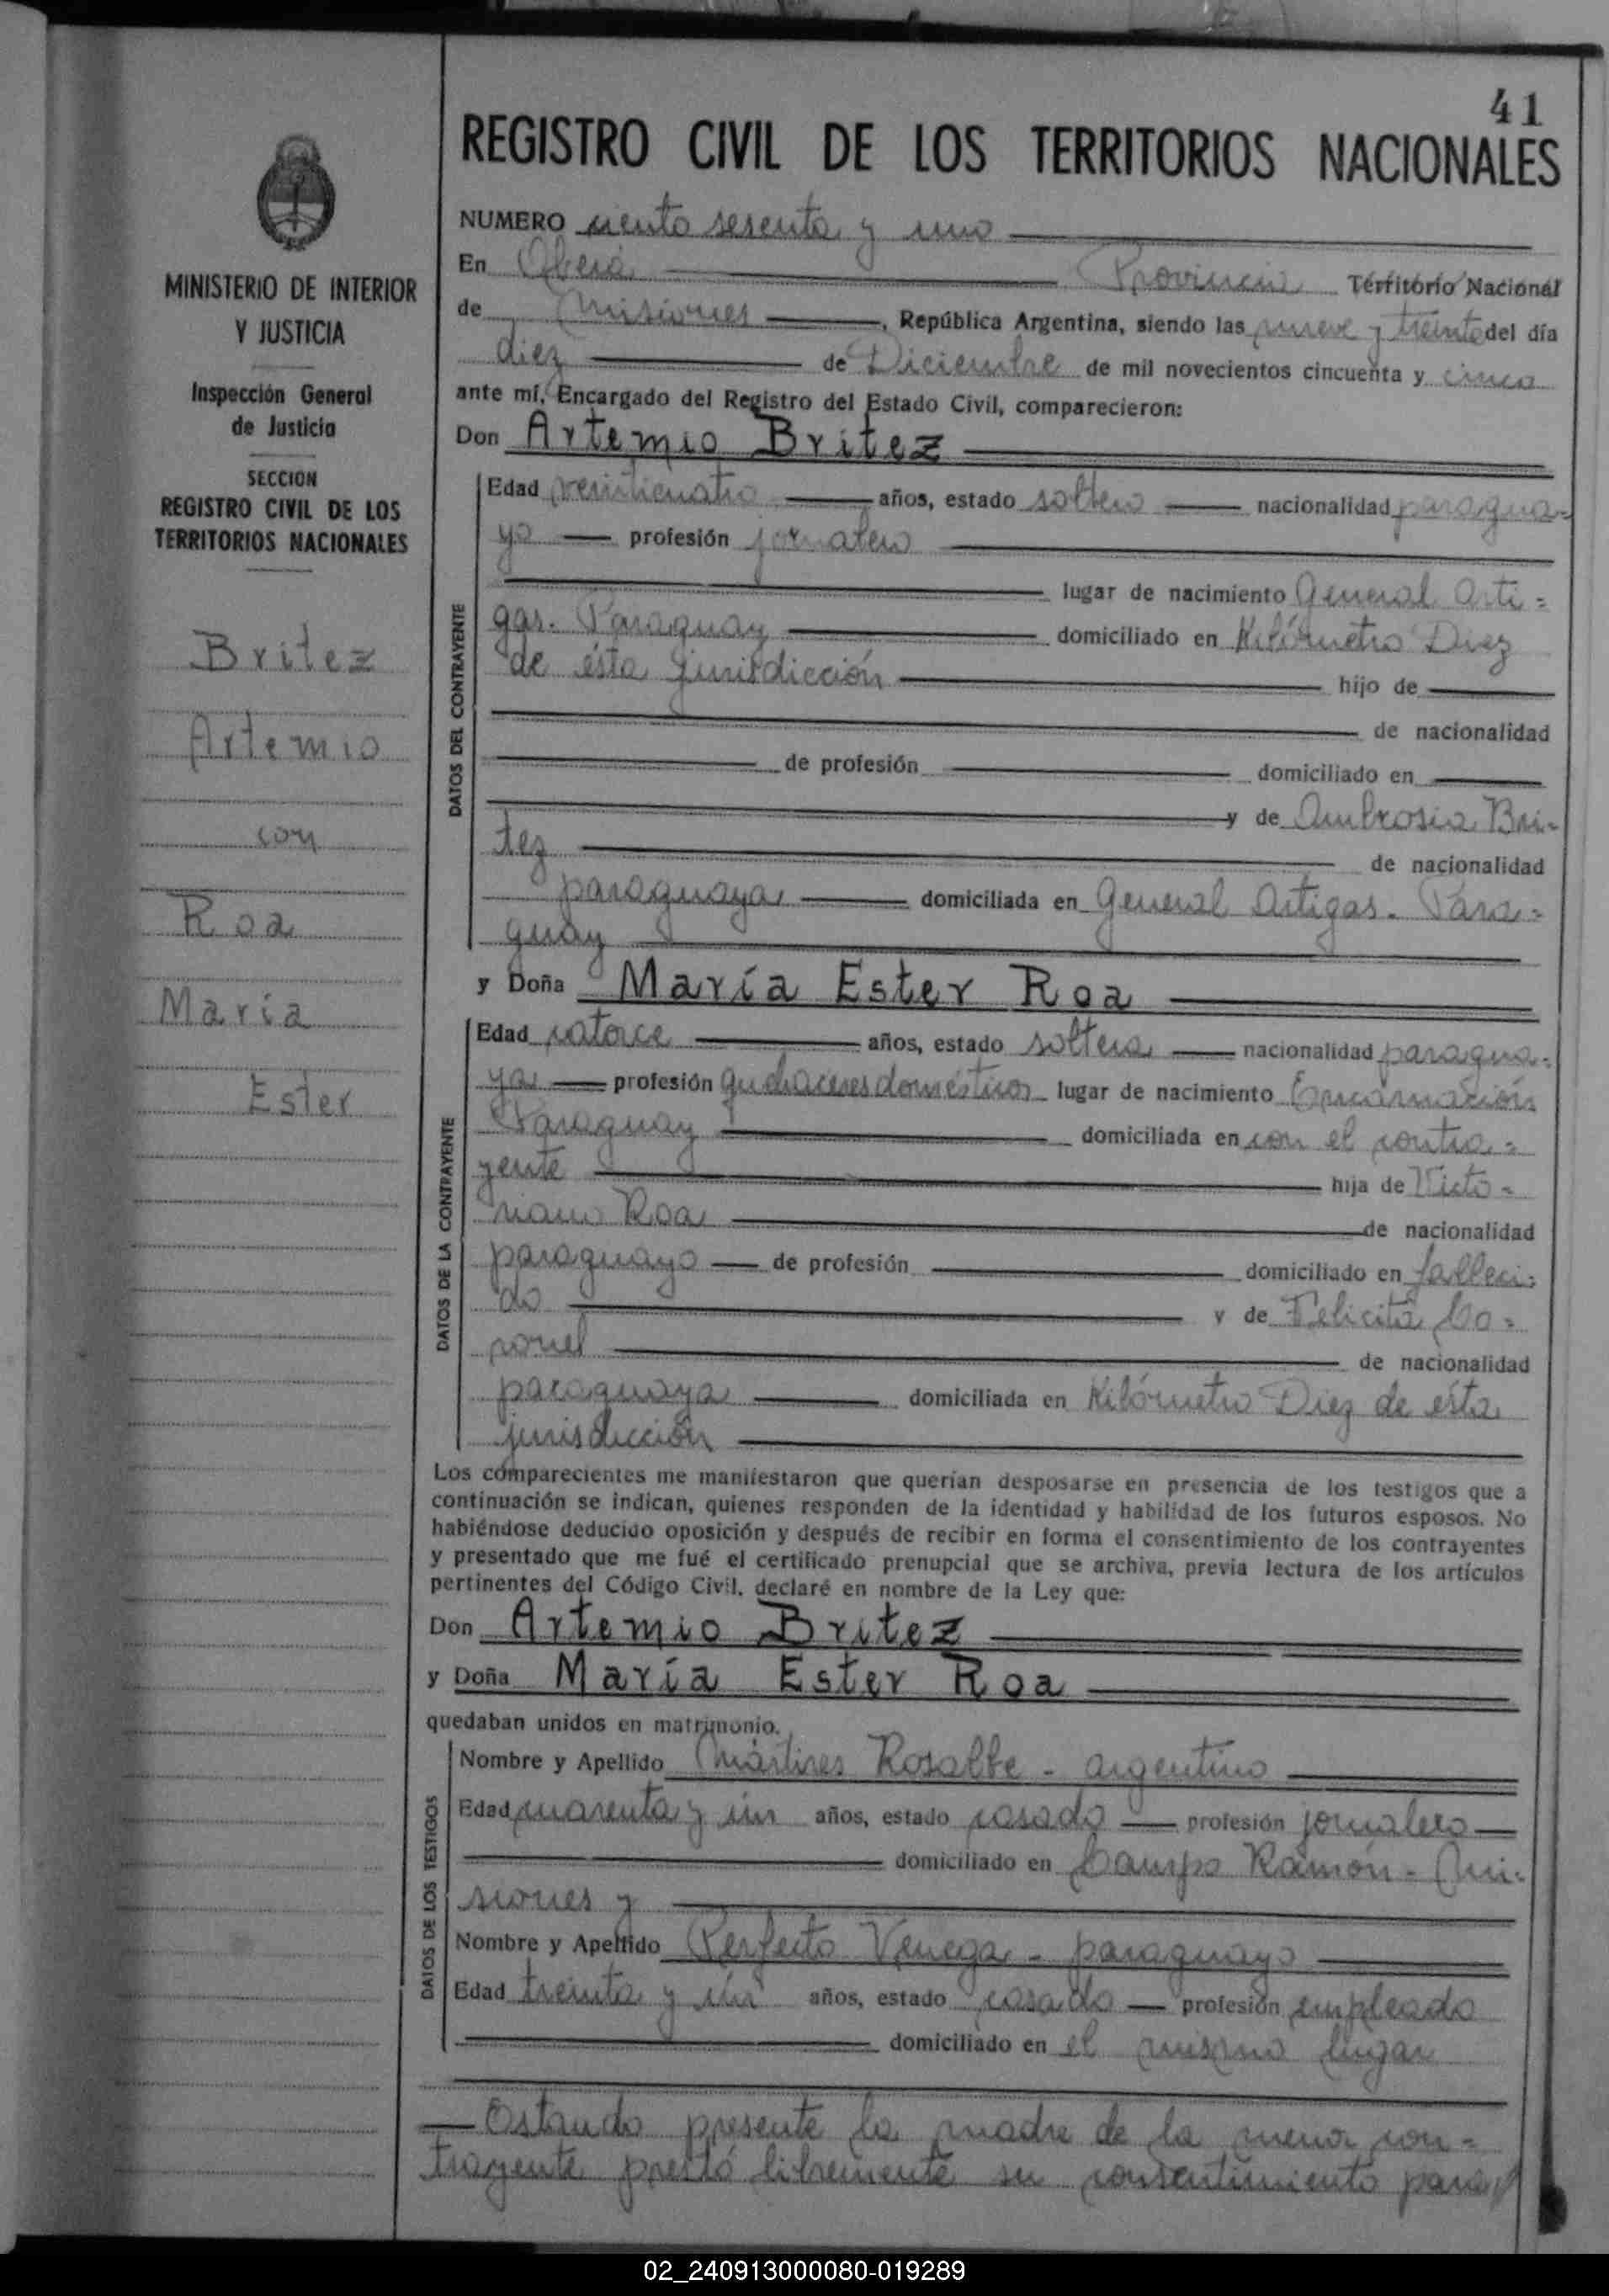 41
REGISTRO CIVIL DE LOS TERRITORIOS NACIONALES
MINISTERIO DE INTERIOR
Y JUSTICIA
Inspección General
de Justicia
SECCION
REGISTRO CIVIL DE LOS
TERRITORIOS NACIONALES
Britez
Artemio
con
Roa
María
Ester
NUMERO ciento sesenta y uno
En Oberá Provincia Territorio Nacional
de Misiones, República Argentina, siendo las nueve y treinta del día
diez de Diciembre de mil novecientos cincuenta y cinco
ante mí, Encargado del Registro del Estado Civil, comparecieron:
Don Artemio Britez
DATOS DEL CONTRAYENTE
Edad veinticuatro años, estado soltero nacionalidad paragua=
yo profesión jornalero
lugar de nacimiento General Arti=
gas. Paraguay domiciliado en Kilómetro Diez
de ésta jurisdicción hijo de
de nacionalidad
de profesión domiciliado en
y de Ambrosia Bri=
tez de nacionalidad
paraguaya domiciliada en General Artigas. Para=
guay
y Doña María Ester Roa
DATOS DE LA CONTRAYENTE
Edad catorce años, estado soltera nacionalidad paragua=
ya profesión quehaceres domésticos lugar de nacimiento Encarnación
Paraguay domiciliada en con el contra=
yente hija de Victo=
riano Roa de nacionalidad
paraguayo de profesión domiciliado en falleci=
do y de Felicita Co=
ronel de nacionalidad
paraguaya domiciliada en Kilómetro Diez de ésta
jurisdicción
Los comparecientes me manifestaron que querían desposarse en presencia de los testigos que a
continuación se indican, quienes responden de la identidad y habilidad de los futuros esposos. No
habiéndose deducido oposición y después de recibir en forma el consentimiento de los contrayentes
y presentado que me fué el certificado prenupcial que se archiva, previa lectura de los artículos
pertinentes del Código Civil, declaré en nombre de la Ley que:
Don Artemio Britez
y Doña María Ester Roa
quedaban unidos en matrimonio.
DATOS DE LOS TESTIGOS
Nombre y Apellido Mártires Rosalbe - argentino
Edad cuarenta y ún años, estado casado profesión jornalero
domiciliado en Campo Ramón - Mi=
siones y
Nombre y Apellido Perfecto Venega - paraguayo
Edad treinta y ún años, estado casado profesión empleado
domiciliado en el mismo lugar
Estando presente la madre de la menor con=
trayente prestó libremente su consentimiento para
02_240913000080-019289